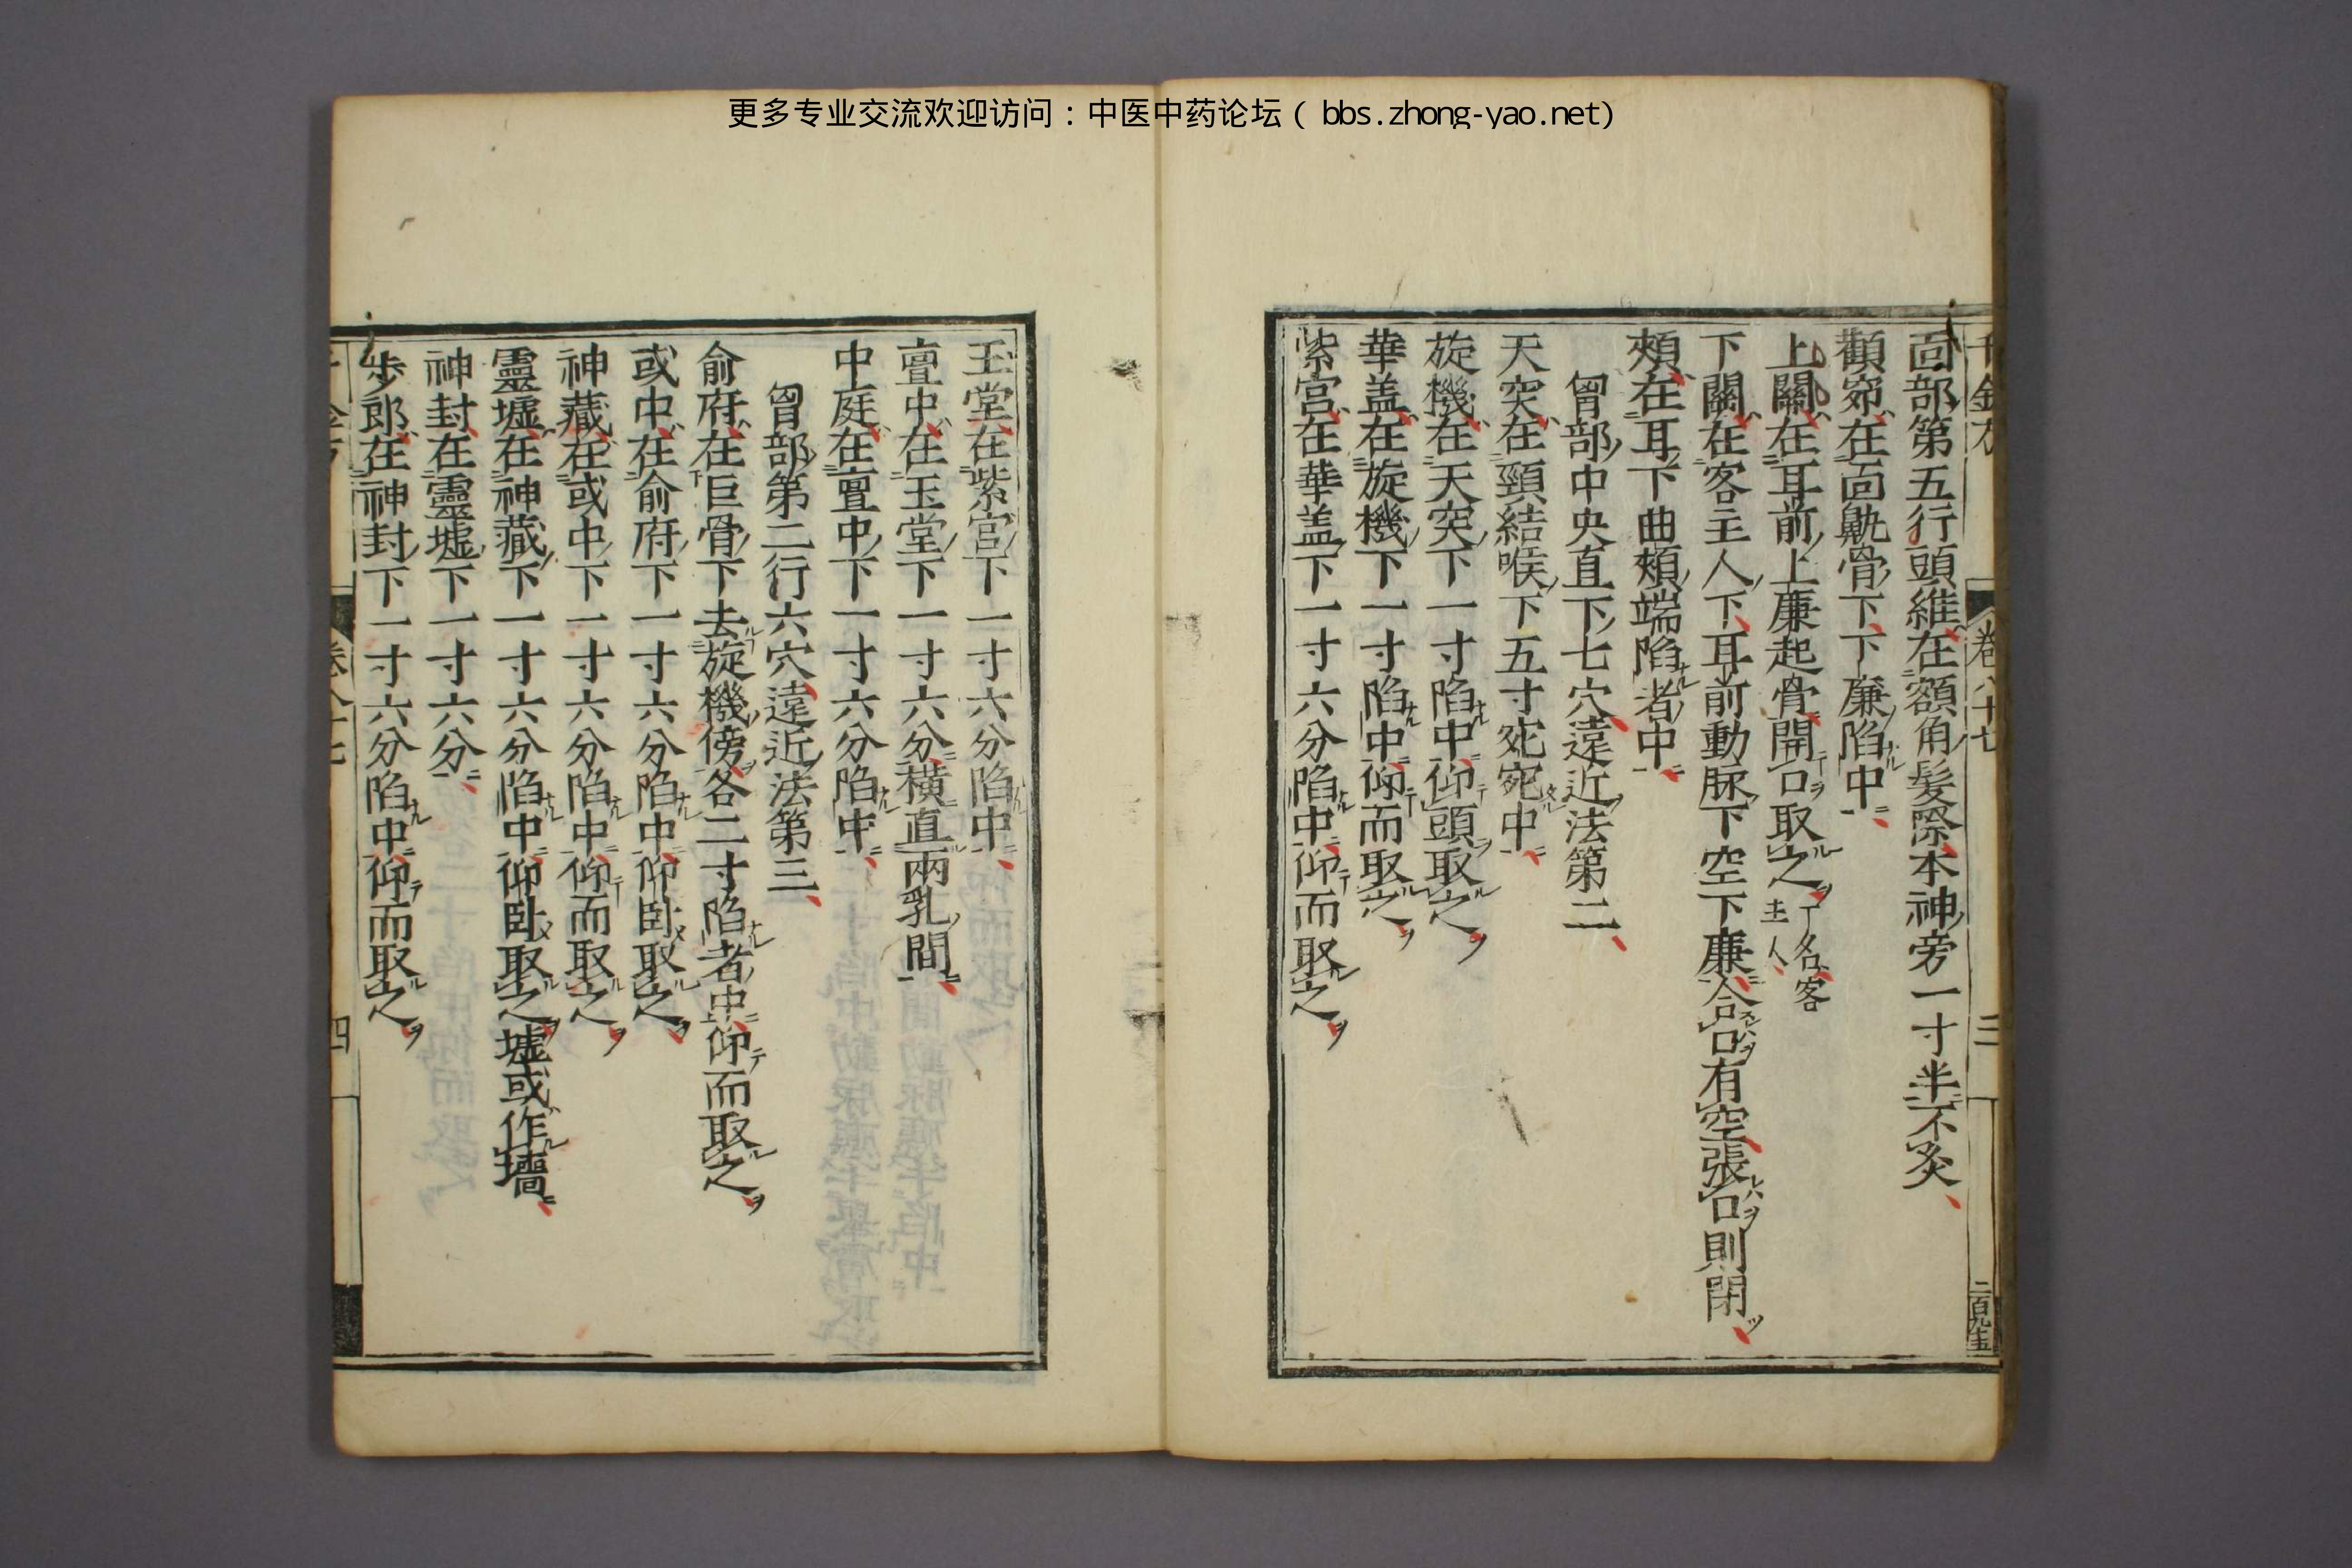 更多专业交流欢迎访问：中医中药论坛（bbs.zhong-yao.net）
卷八十七
三
面部第五行頭維在額角髮際本神旁一寸半不灸
顴窌在面鼽骨下下廉陷中
上關在耳前上廉起骨開口取之一名客主人
下關在客主人下耳前動脉下空下廉合口有空張口則閉
頰在耳下曲頰端陷者中
胷部中央直下七穴遠近法第二
天突在頸結喉下五寸宛宛中
旋機在天突下一寸陷中仰頭取之
華盖在旋機下一寸陷中仰而取之
紫宫在華盖下一寸六分陷中仰而取之
玉堂在紫宫下一寸六分陷中
亶中在玉堂下一寸六分橫直兩乳間
中庭在亶中下一寸六分陷中
胷部第二行六穴遠近法第三
俞府在巨骨下去旋機傍各二寸陷者中仰而取之
或中在俞府下一寸六分陷中仰卧取之
神藏在或中下一寸六分陷中仰而取之
靈墟在神藏下一寸六分陷中仰卧取之墟或作墻
神封在靈墟下一寸六分
步郎在神封下一寸六分陷中仰而取之
四